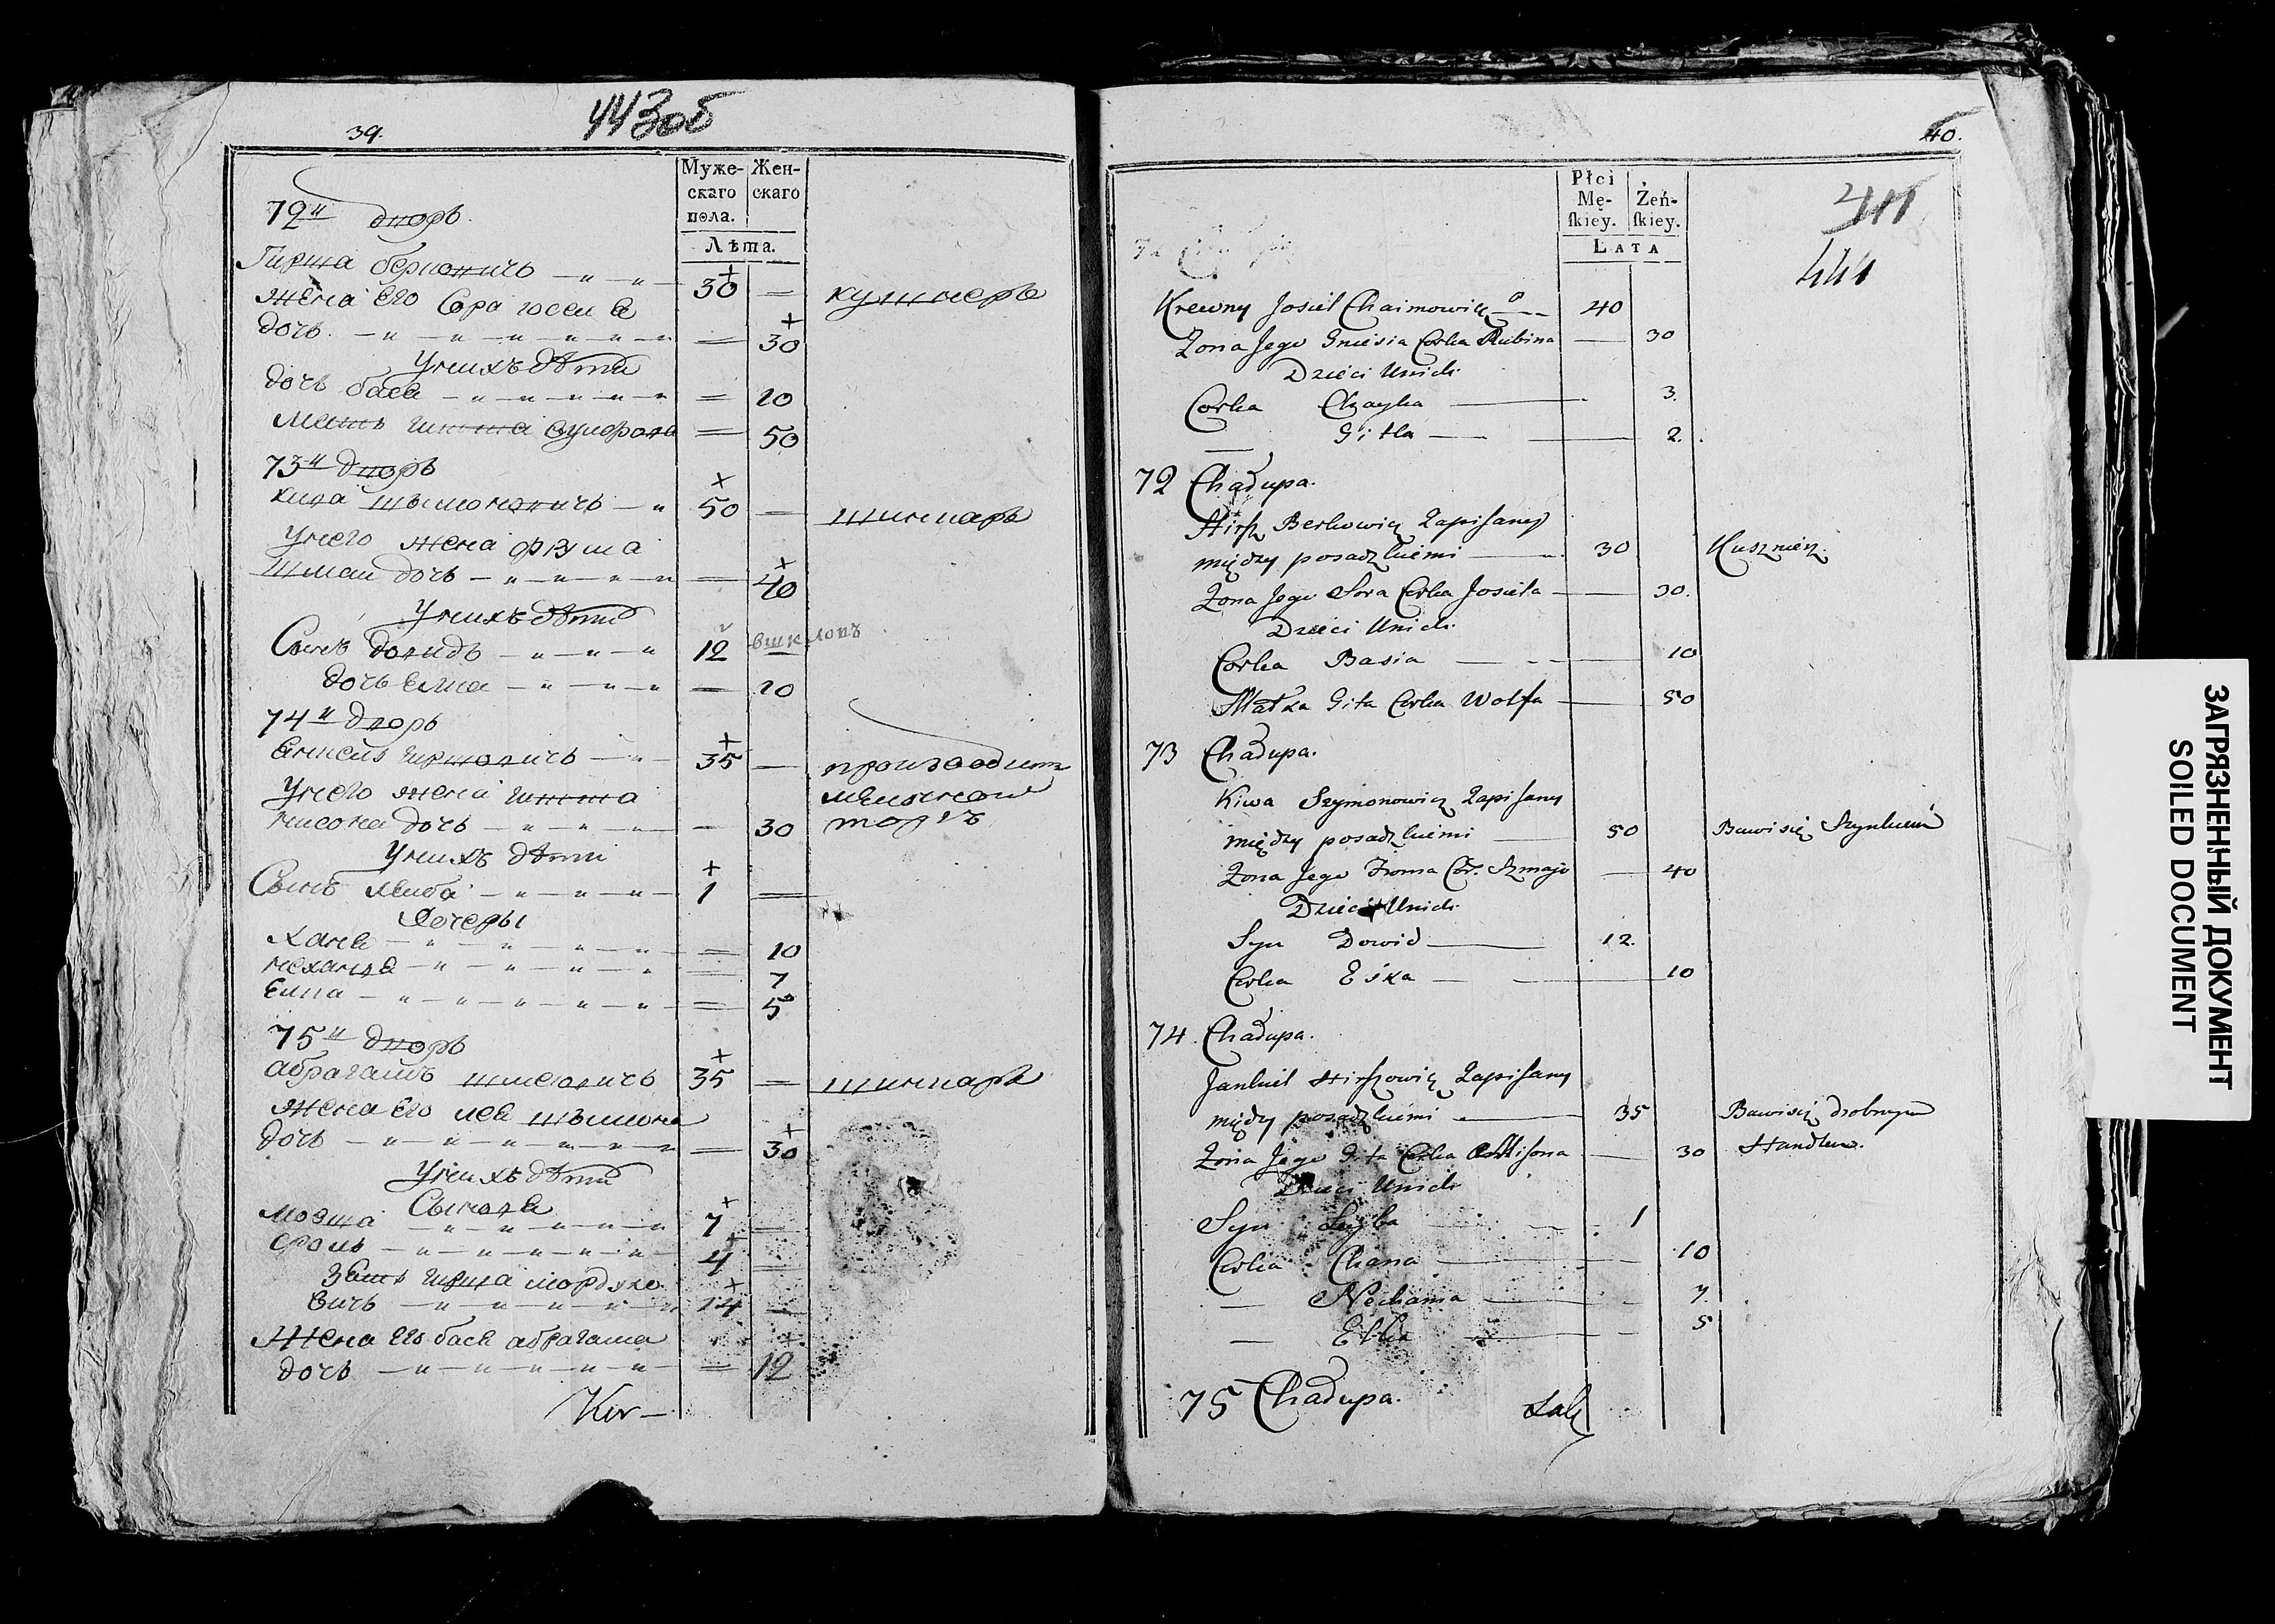 39.
443об
Муже-
скаго
пола.
Жен-
скаго
Лѣта.
72й дворъ.
Гирша берковичъ
30
кушнеръ
жена его Сора иосея
дочь
30
У нихъ дѣти
дочь бася
10
Мать
50
73й дворъ
кива шымоновичъ
50
шинкаръ
У него жена фрума
шмаи дочь
40
У нихъ дѣти
Сынъ довидъ
12
дочь
10
74й дворъ
гиршовичъ
35
производитъ
У него жена
мелочной
дочь
30
торгъ
У нихъ дѣти
Сынъ лейба
1
дочеры
хана
10
нехама
7
5
75й дворъ
абрагамъ
35
шинкаръ
жена его лея шымона
дочь
30
У нихъ дѣти
Сыновя
мовша
7
сроль
4
зять гирша мордухо
вичъ
14
жена его бася абрагама
дочь
12
40.
Płci
Mę-
ſkiey.
Żeń-
ſkiey.
LATA
411
444
Krewny Josiel Chaimowicz
40
Zona Jego Gniesia Corka Rubina
30
Dzieci Unich
Corka Chayka
3.
Gitla
2.
72 Chałupa.
Hirsz Berkowicz Zapisany
między posadzkiemi
30
Kusznierz.
Zona Jego Sora Corka Josiela
30.
Dzieci Unich
Corka Basia
10
Matka Gita Corka Wolfa
50
73 Chałupa.
Kiwa Szymonowicz Zapisany
między posadzkiemi
50
Bawi się Szynkiem
Zona Jego Froma Cor. Szmajo
40
Dzieci Unich
Syn Dowid
12.
Corka Eska
10
74. Chałupa.
Jankiel Hirszowicz Zapisany
między posadzkiemi
35
Bawi się drobnym
Zona Jego Gita Corka
30
Handlem.
Dzieci Unich
Syn Leyba
1
Corka Chana
10
Nechama
7.
Etka
5
75 Chałupa.
ЗАГРЯЗНЕННЫЙ ДОКУМЕНТ
SOILED DOCUMENT